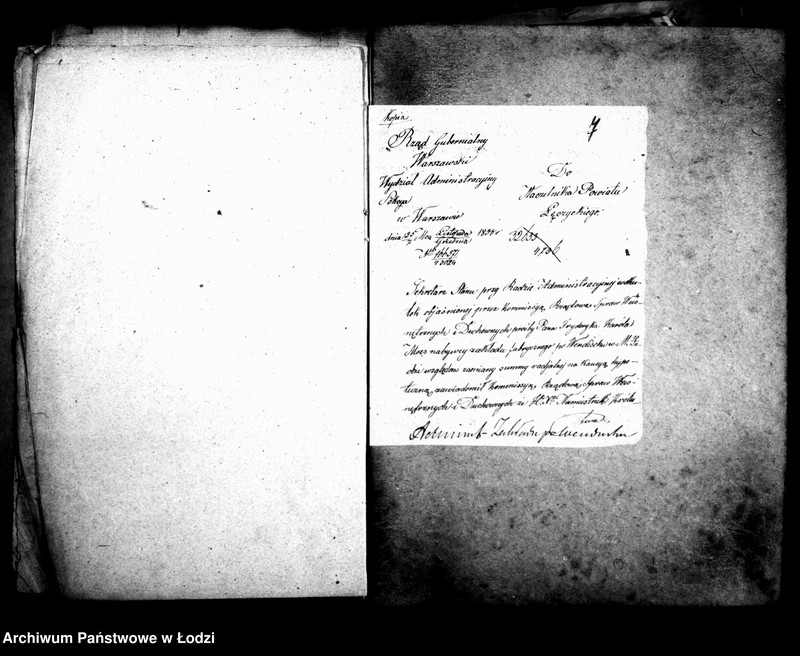 Kopia
7
Rząd Gubernialny
Warszawski
Wydział Administracyjny
Sekcya
w Warszawie
dnia 25/7 Mca Listopada/Grudnia 1854 r
Nr 46657/43024
Do
Naczelnika Powiatu
Łęczyckiego
Sekretarz Stanu przy Radzie Administracyjnej wsku-
tek objaśnionej przez Kommissyą Rządową Spraw Wew-
nętrznych i Duchownych prośby Pana Fryderyka Karola
Moes nabywcy zakładu fabrycznego po Wendischu w M. Ło-
dzi względem zamiany summy radjalnej na kaucyą hypo-
teczną zawiadomił Kommissyą Rządową Spraw Wew-
nętrznych i Duchownych że JO. Xże Namiestnik Króle-
stwa
Zakładu po Wendischu
Archiwum Państwowe w Łodzi